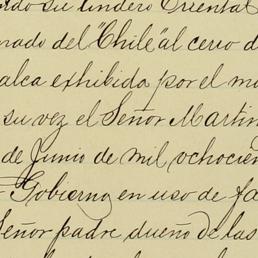 su lindero Oriental
nado del "Chile" al cerro d
alca exhibida por el m
su vez el Señor Martin
de Junio de mil ochocien
Gobierno en uso de fa
Señor padre dueño de las